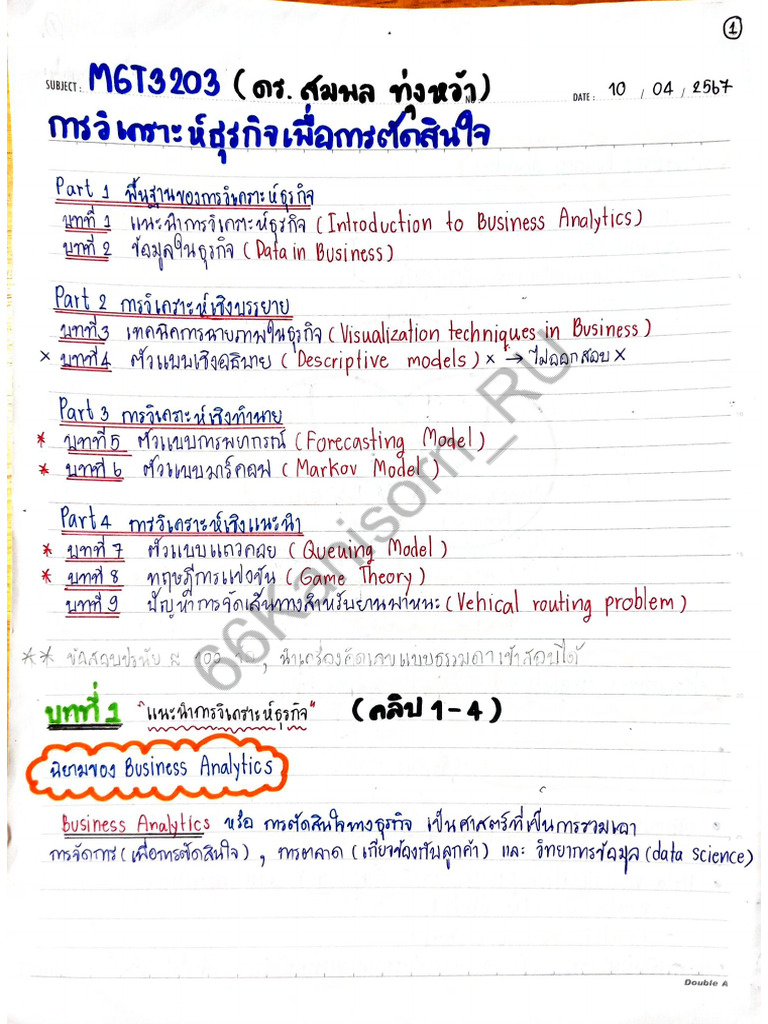 1
SUBJECT: MGT3203 (ดร. สมพล ทุ่งหว้า) NO. DATE: 10 / 04 / 2567
การวิเคราะห์ธุรกิจเพื่อการตัดสินใจ
Part 1 พื้นฐานของการวิเคราะห์ธุรกิจ
บทที่ 1 แนะนำการวิเคราะห์ธุรกิจ (Introduction to Business Analytics)
บทที่ 2 ข้อมูลในธุรกิจ (Data in Business)
Part 2 การวิเคราะห์เชิงบรรยาย
บทที่3 เทคนิคการฉายภาพในธุรกิจ (Visualization techniques in Business)
× บทที่4 ตัวแบบเชิงอธิบาย (Descriptive models) × → ไม่ออกสอบ ×
Part 3 การวิเคราะห์เชิงทำนาย
* บทที่5 ตัวแบบการพยากรณ์ (Forecasting Model)
* บทที่ 6 ตัวแบบมาร์คอฟ (Markov Model)
Part 4 การวิเคราะห์เชิงแนะนำ
* บทที่ 7 ตัวแบบแถวคอย (Queuing Model)
* บทที่ 8 ทฤษฎีการแข่งขัน (Game Theory)
บทที่ 9 ปัญหาการจัดเส้นทางสำหรับยานพาหนะ (Vehical routing problem)
** ข้อสอบปรนัย ≈ 100 ข้อ, นำเครื่องคิดเลขแบบธรรมดาเข้าสอบได้
บทที่ 1 "แนะนำการวิเคราะห์ธุรกิจ" (คลิป 1-4)
นิยามของ Business Analytics
Business Analytics หรือ การตัดสินใจทางธุรกิจ เป็นศาสตร์ที่เป็นการรวมเอา
การจัดการ (เพื่อการตัดสินใจ), การตลาด (เกี่ยวข้องกับลูกค้า) และ วิทยาการข้อมูล (data science)
Double A
66Kanisorn_RU